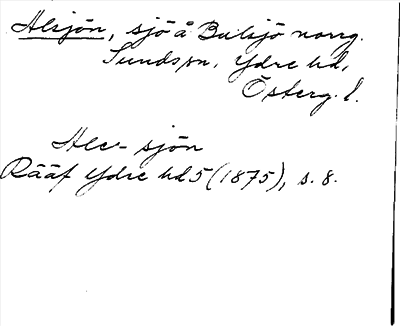 Alsjön, sjö å Bulsjö norrg.
Sunds sn, Ydre hd,
Österg. l.
Ale- sjön
Rääf Ydre hd 5 (1875), s. 8.